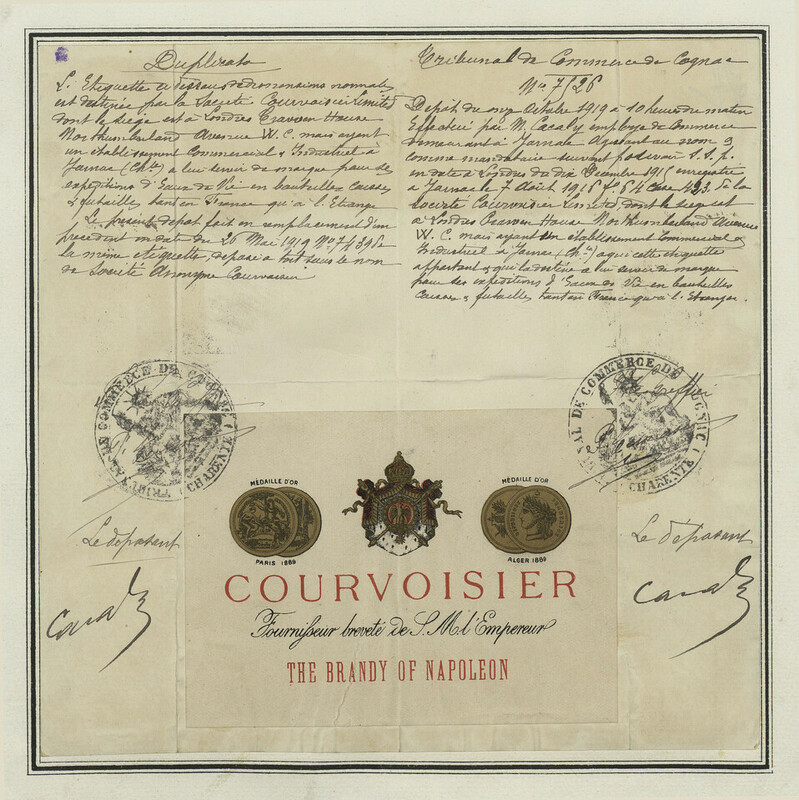 Duplicata
L'Etiquette ci dessous de dimensions normales
est destinée par la Société Courvoisier Limited
dont le siège est à Londres Craven House
Northumberland Avenue W.C. mais ayant
un établissement Commercial & Industriel à
Jarnac (Chte) à lui servir de marque pour ses
expéditions d'Eaux de Vie en bouteilles caisses
& futailles, tant en France qu'à l'Etranger
Le présent dépôt fait en remplacement d'un
précédent en date du 26 Mai 1919 No 7
la même étiquette, déposée à tort sous le nom
de Société Anonyme Courvoisier
Tribunal de Commerce de Cognac
No 7/26
Dépôt du onze Octobre 1919 à 10 heures du matin
Effectué par M. Casaly employé de Commerce
demeurant à Jarnac Agissant au nom &
comme mandataire suivant pouvoir S.S.p.
en date à Londres du dix Décembre enregistré
à Jarnac le 7 Août case 423 de la
Société Courvoisier Limited dont le siège est
à Londres Craven House Northumberland Avenue
W.C. mais ayant un établissement Commercial &
Industriel à Jarnac (Chte) à qui cette étiquette
appartient & qui la destine à lui servir de marque
pour ses expéditions d'Eaux de Vie en bouteilles
caisses & futailles tant en France qu'à l'Etranger.
TRIBUNAL DE COMMERCE DE COGNAC
(CHARENTE)
TRIBUNAL DE COMMERCE DE COGNAC
(CHARENTE)
Le déposant
Le déposant
MÉDAILLE D'OR
PARIS 1889
MÉDAILLE D'OR
ALGER 1889
COURVOISIER
Fournisseur breveté de S.M. l'Empereur
THE BRANDY OF NAPOLEON